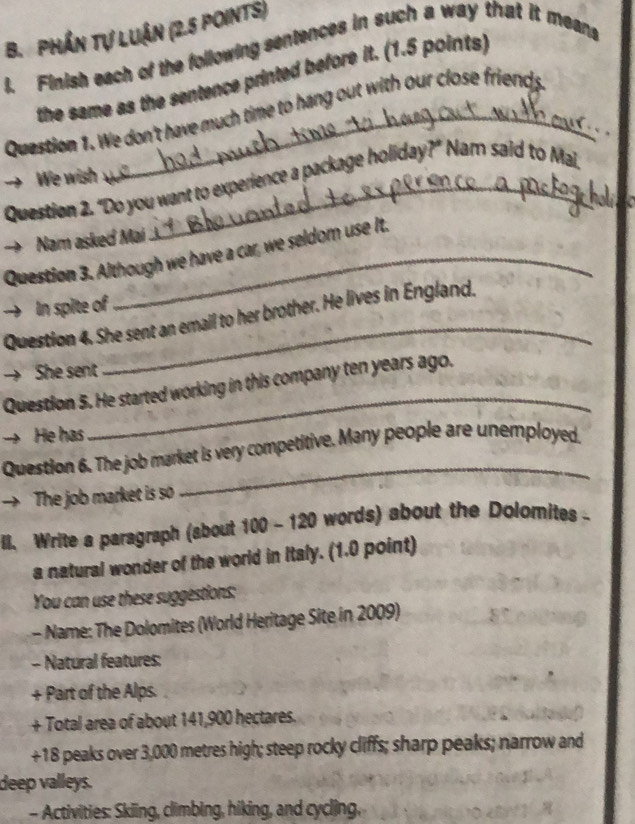 B. PHẦN TỰ LUẬN (2.5 POINTS)
I. Finish each of the following sentences in such a way that it means
the same as the sentence printed before it. (1.5 points)
Question 1. We don't have much time to hang out with our close friends.
→ We wish we had much time to hang out with our...
Question 2. "Do you want to experience a package holiday?" Nam said to Mai.
→ Nam asked Mai if she wanted to experence a package holida
Question 3. Although we have a car, we seldom use it.
→ In spite of
Question 4. She sent an email to her brother. He lives in England.
→ She sent
Question 5. He started working in this company ten years ago.
→ He has
Question 6. The job market is very competitive. Many people are unemployed.
→ The job market is so
II. Write a paragraph (about 100 - 120 words) about the Dolomites -
a natural wonder of the world in Italy. (1.0 point)
You can use these suggestions:
- Name: The Dolomites (World Heritage Site in 2009)
- Natural features:
+ Part of the Alps.
+ Total area of about 141,900 hectares.
+18 peaks over 3,000 metres high; steep rocky cliffs; sharp peaks; narrow and
deep valleys.
- Activities: Skiing, climbing, hiking, and cycling.